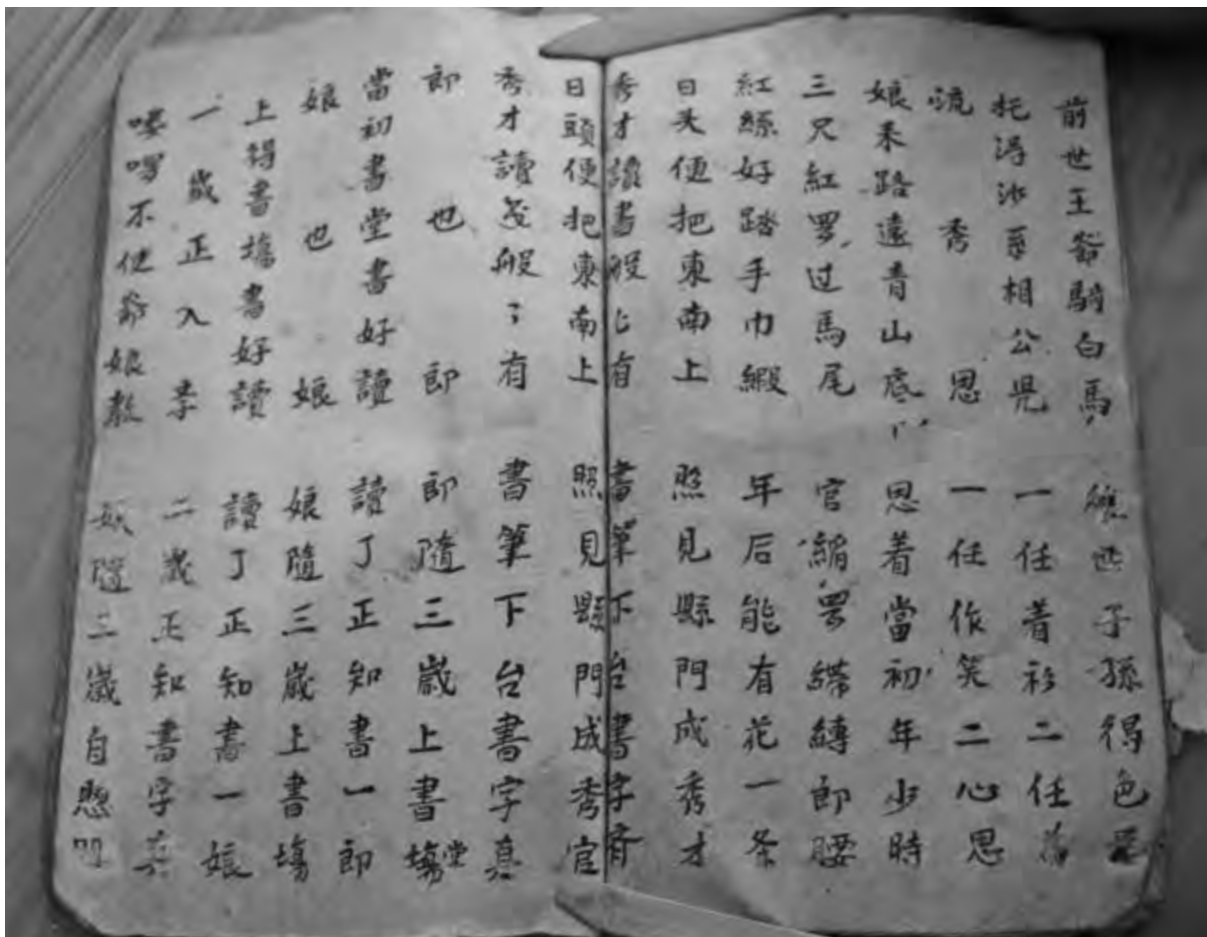 前世王爺騎白馬 世子孫得色
托得 相公児 一任着衫二任
流秀思 一任作笑二心思
娘来路遠青山底 思着當初年少時
三尺紅罗过馬尾 官縮罗帶縛郎腰
紅絲好踏手巾緞 年后能有花一条
日头便把東南上 照見縣門成秀才
秀才讀書般〻有 書筆下台書字齐
日頭便把東南上 照見縣門成秀官
秀才讀書般〻有 書筆下台書字真
郎也郎 郎隨三歲上書塲堂
當初書堂書好讀 讀了正知書一郎
娘也娘 娘隨三歲上書塲
上得書塲書好讀 讀了正知書一娘
一歲正入孝 二歲正知書字真
不使爺娘教 隨三歲自